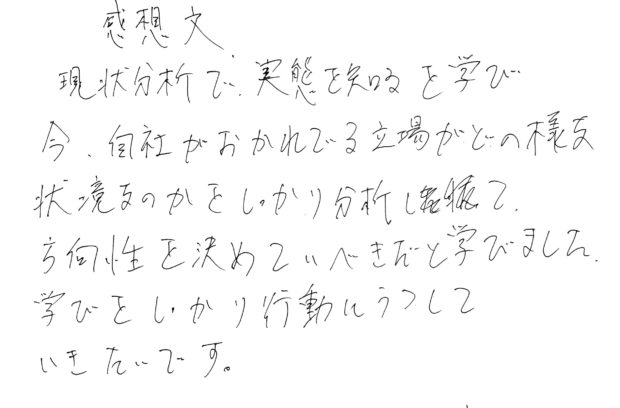 感想文
現状分析で、実態を知る を学び
今、自社がおかれてる立場がどの様な
状境なのかをしっかり分析し
方向性を決めていべきだと学びました。
学びをしっかり行動にうつして
いきたいです。